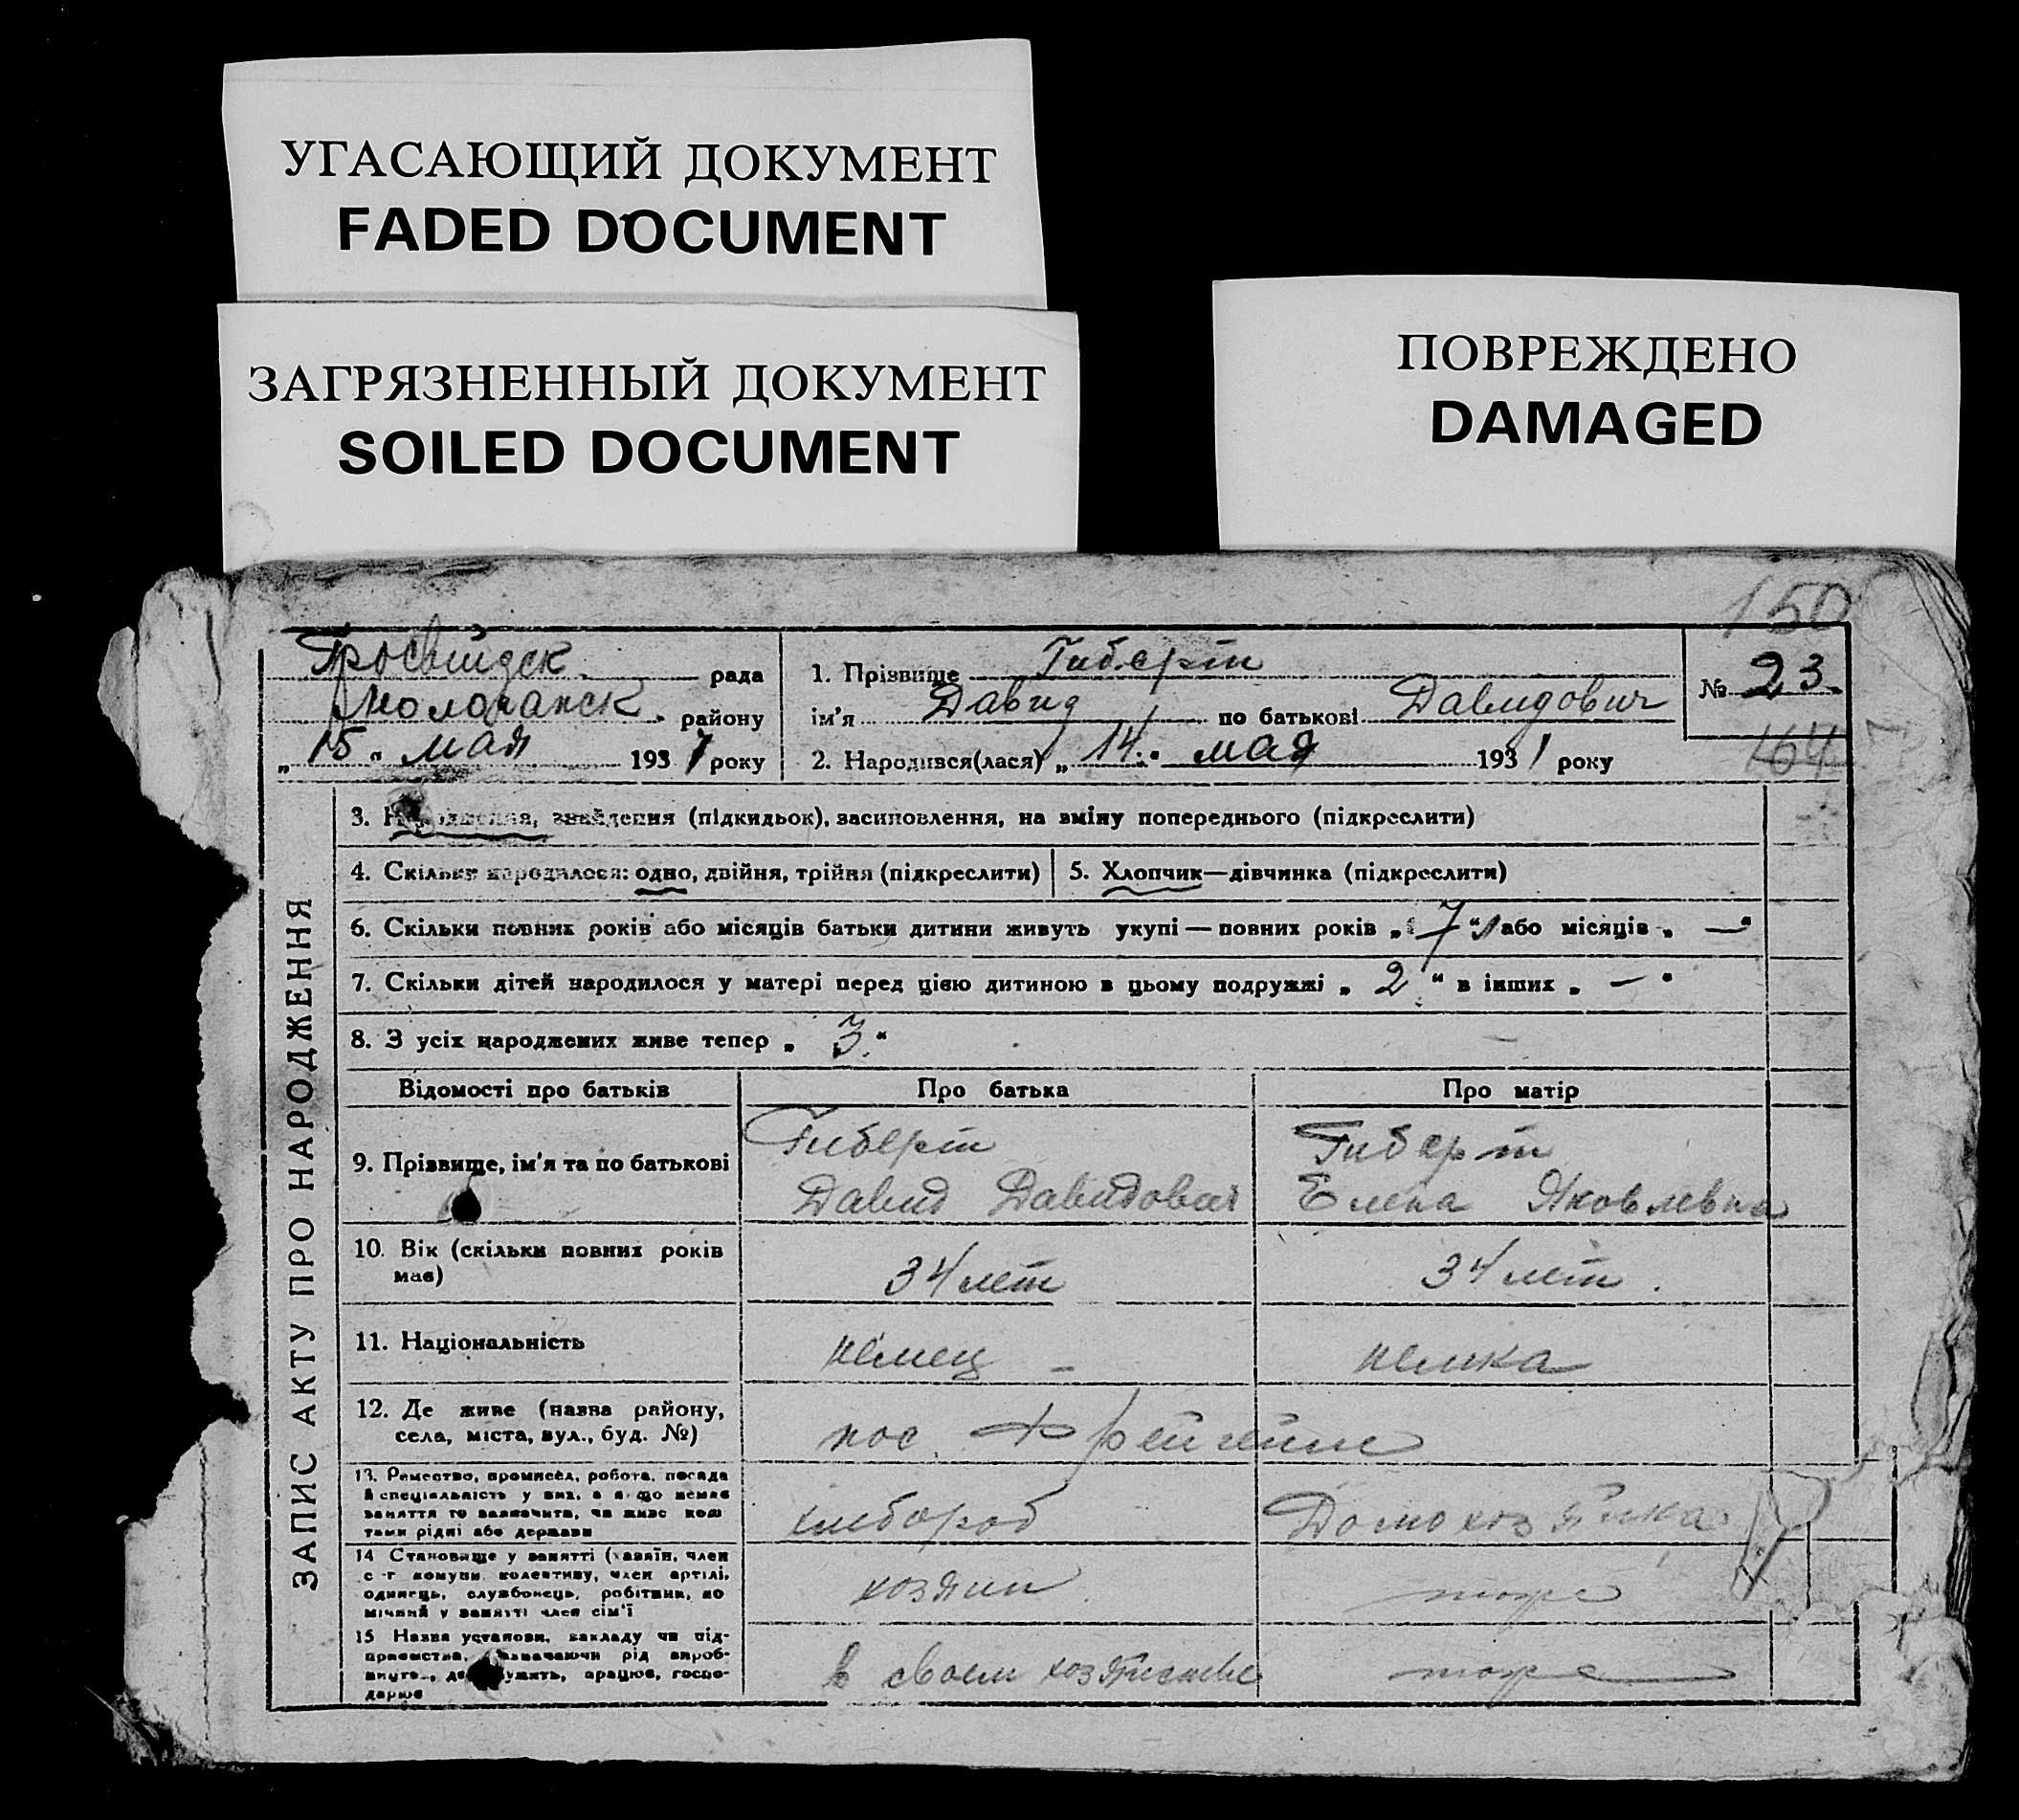 УГАСАЮЩИЙ ДОКУМЕНТ
FADED DOCUMENT
ЗАГРЯЗНЕННЫЙ ДОКУМЕНТ
SOILED DOCUMENT
ПОВРЕЖДЕНО
DAMAGED
150
рада
Молочанск. району
„15" мая 1931 року
1. Прізвище Гиберт
ім'я Давид по батькові Давидович
2. Народився(лася) „14." мая 1931 року
№ 23.
164
ЗАПИС АКТУ ПРО НАРОДЖЕННЯ
3. Народження, знайдення (підкидьок), засиновлення, на зміну попереднього (підкреслити)
4. Скільки народилося: одно, двійня, трійня (підкреслити)
5. Хлопчик—дівчинка (підкреслити)
6. Скільки повних років або місяців батьки дитини живуть укупі — повних років „7" або місяців „—"
7. Скільки дітей народилося у матері перед цією дитиною в цьому подружжі „2" в інших „—"
8. З усіх народжених живе тепер „3."
Відомості про батьків
Про батька
Про матір
9. Прізвище, ім'я та по батькові
Гиберт
Давид Давидович
Гиберт
Елена Яковлевна
10. Вік (скільки повних років
має)
34 лет
34 лет.
11. Національність
немец
немка
12. Де живе (назва району,
села, міста, вул., буд. №)
пос.
13. Ремество, промисел, робота, посада
й спеціяльність у них, а якщо немає
заняття то зазначити, чи живе кош
тами рідні або держави
хлебороб
Домохозяйка
14 Становище у занятті (хазяїн, член
с-г комуни, колективу, член артілі,
одинець, службонець, робітник, по
мічний у занятті член сім'ї
хозяин
тоже
15 Назва установи, закладу чи під-
приємства, зазначаючи рід вироб-
ництв., де служить, працює, госпо-
дарює
в своем хозяйстве
тоже